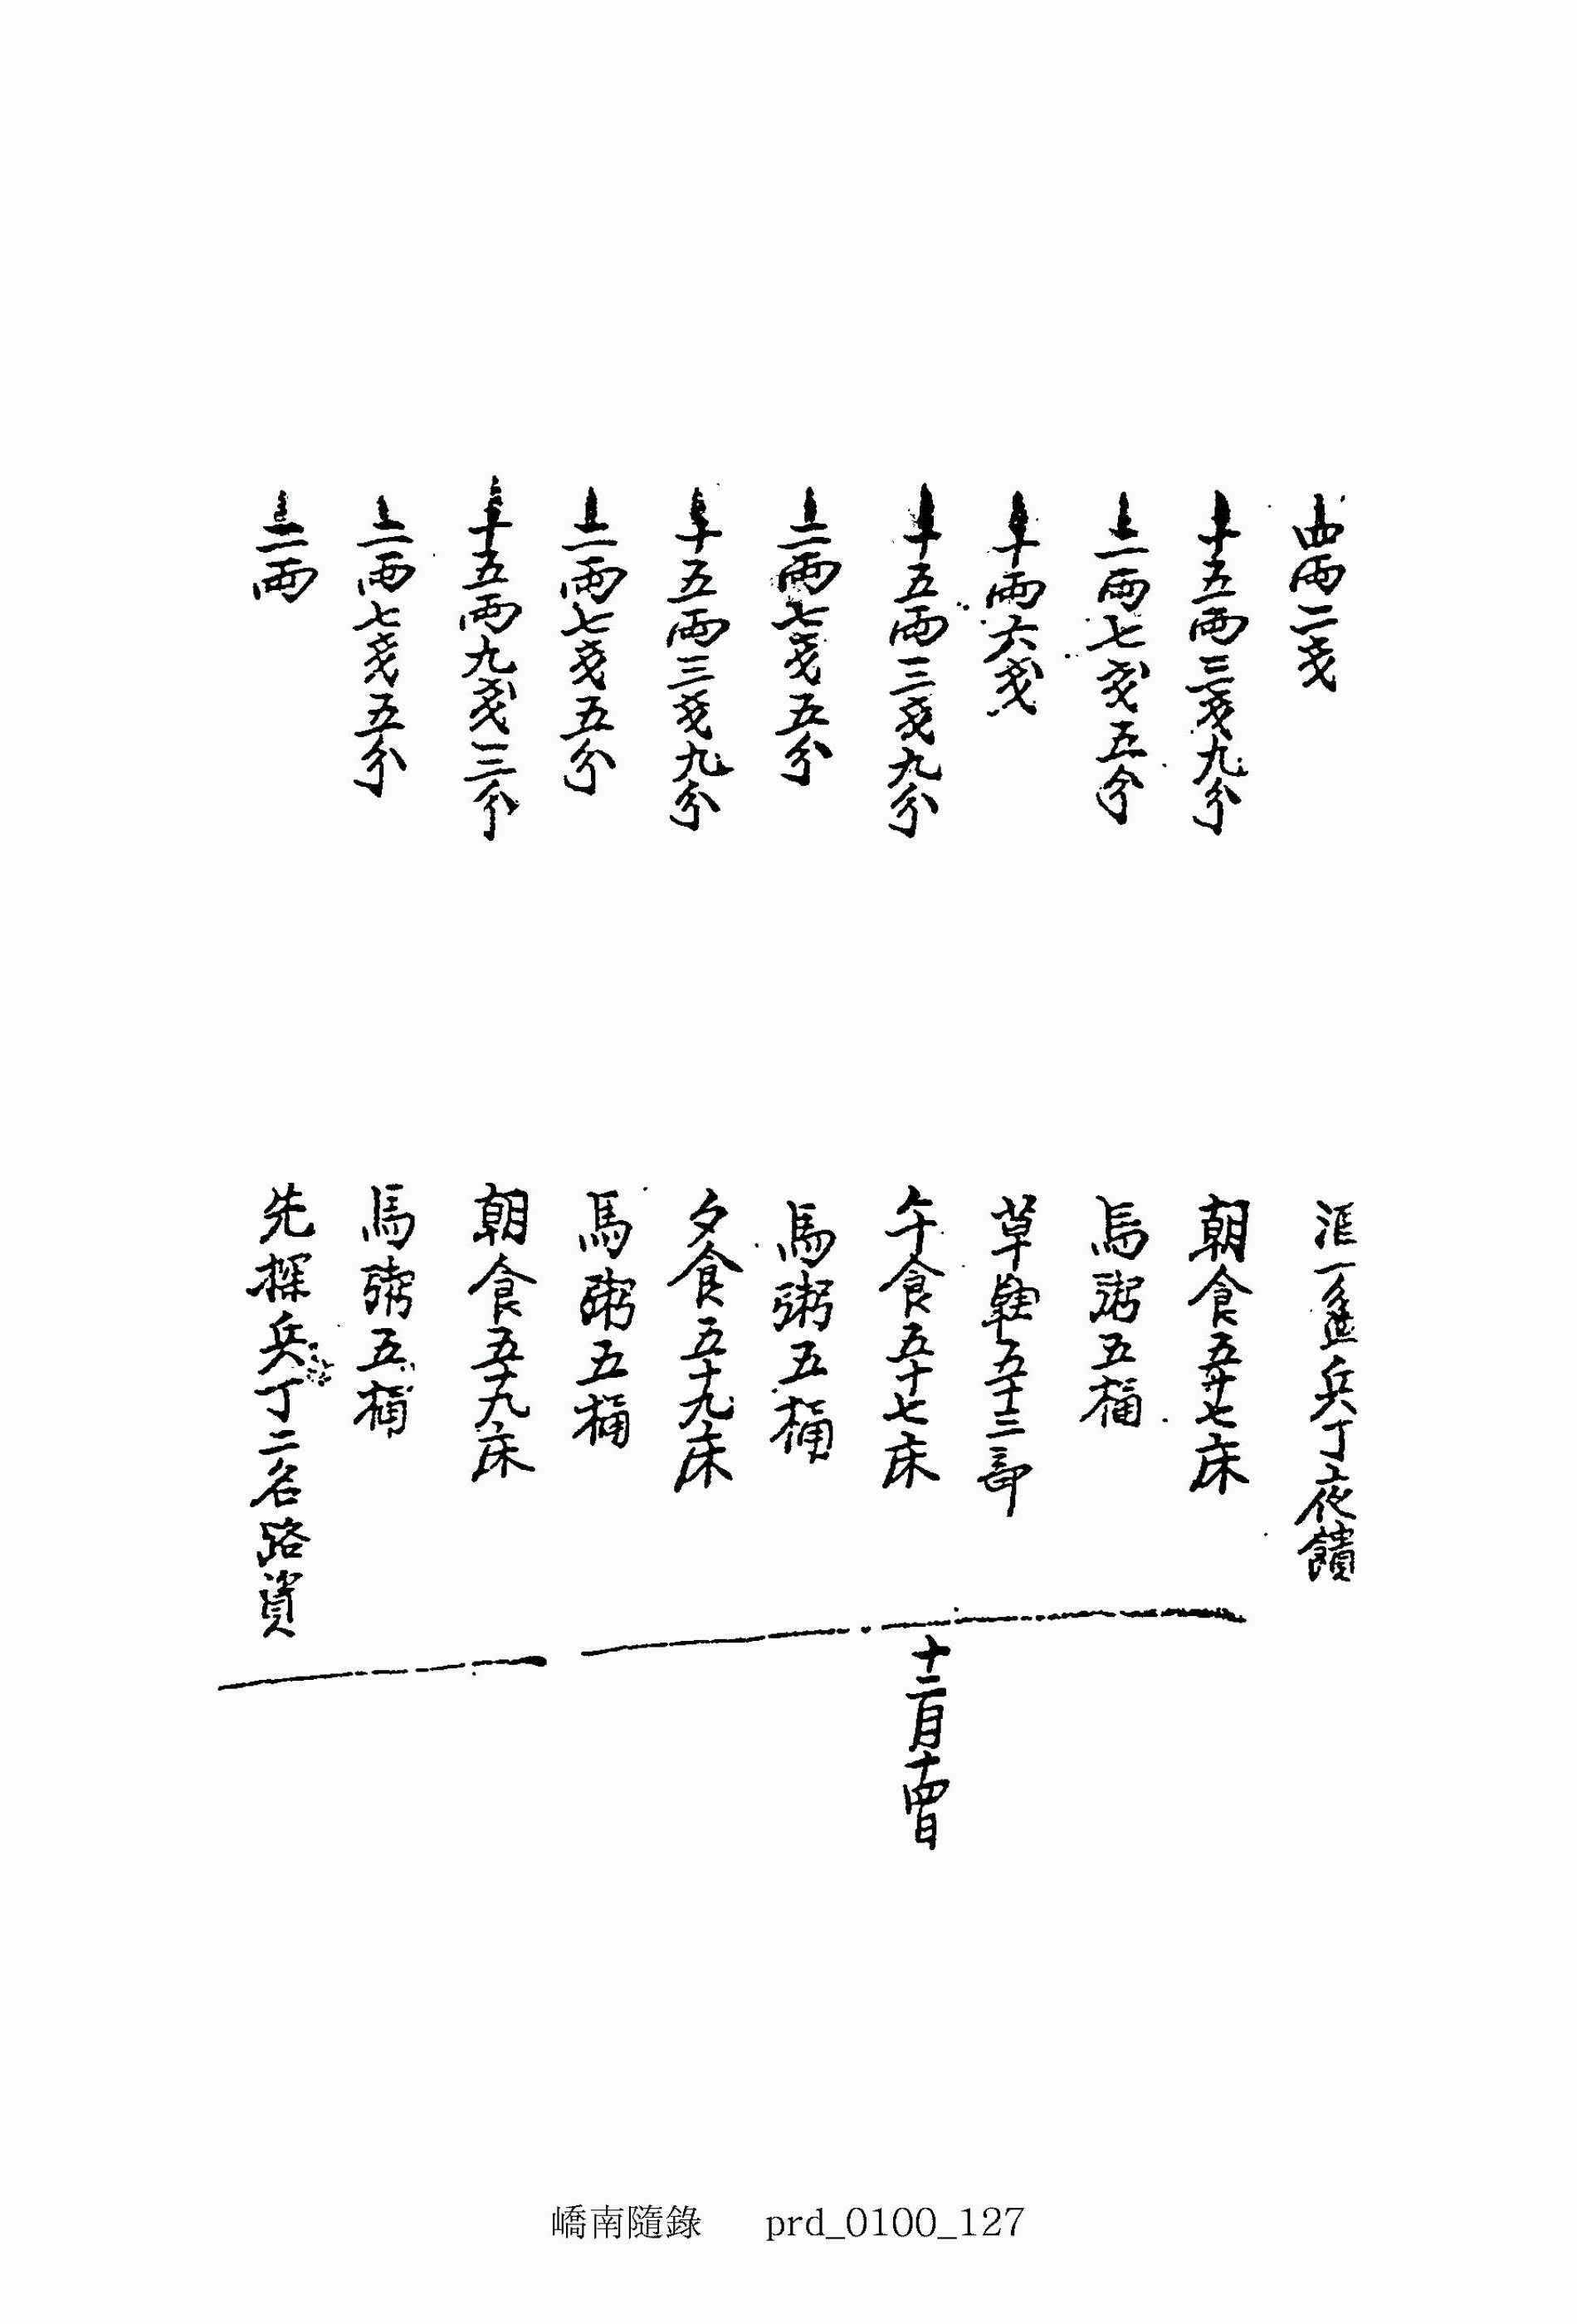 四兩二戔 兵丁夜饋
十五兩三戔九分 朝食五十七床
二兩七戔五分 馬粥五桶
十兩六戔 草鞋五十三部
十五兩三戔九分 午食五十七床
二兩七戔五分 馬粥五桶
十五兩三戔九分 夕食五十九床
二兩七戔五分 馬粥五桶
十二月十四日
十五兩九戔三分 朝食五十九床
二兩七戔五分 馬粥五桶
二兩 先探兵丁二名路資
嶠南隨錄 prd_0100_127